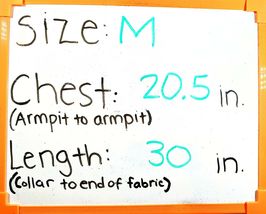 Size: M
Chest: 20.5 in.
(Armpit to armpit)
Length: 30 in.
(Collar to end of fabric)